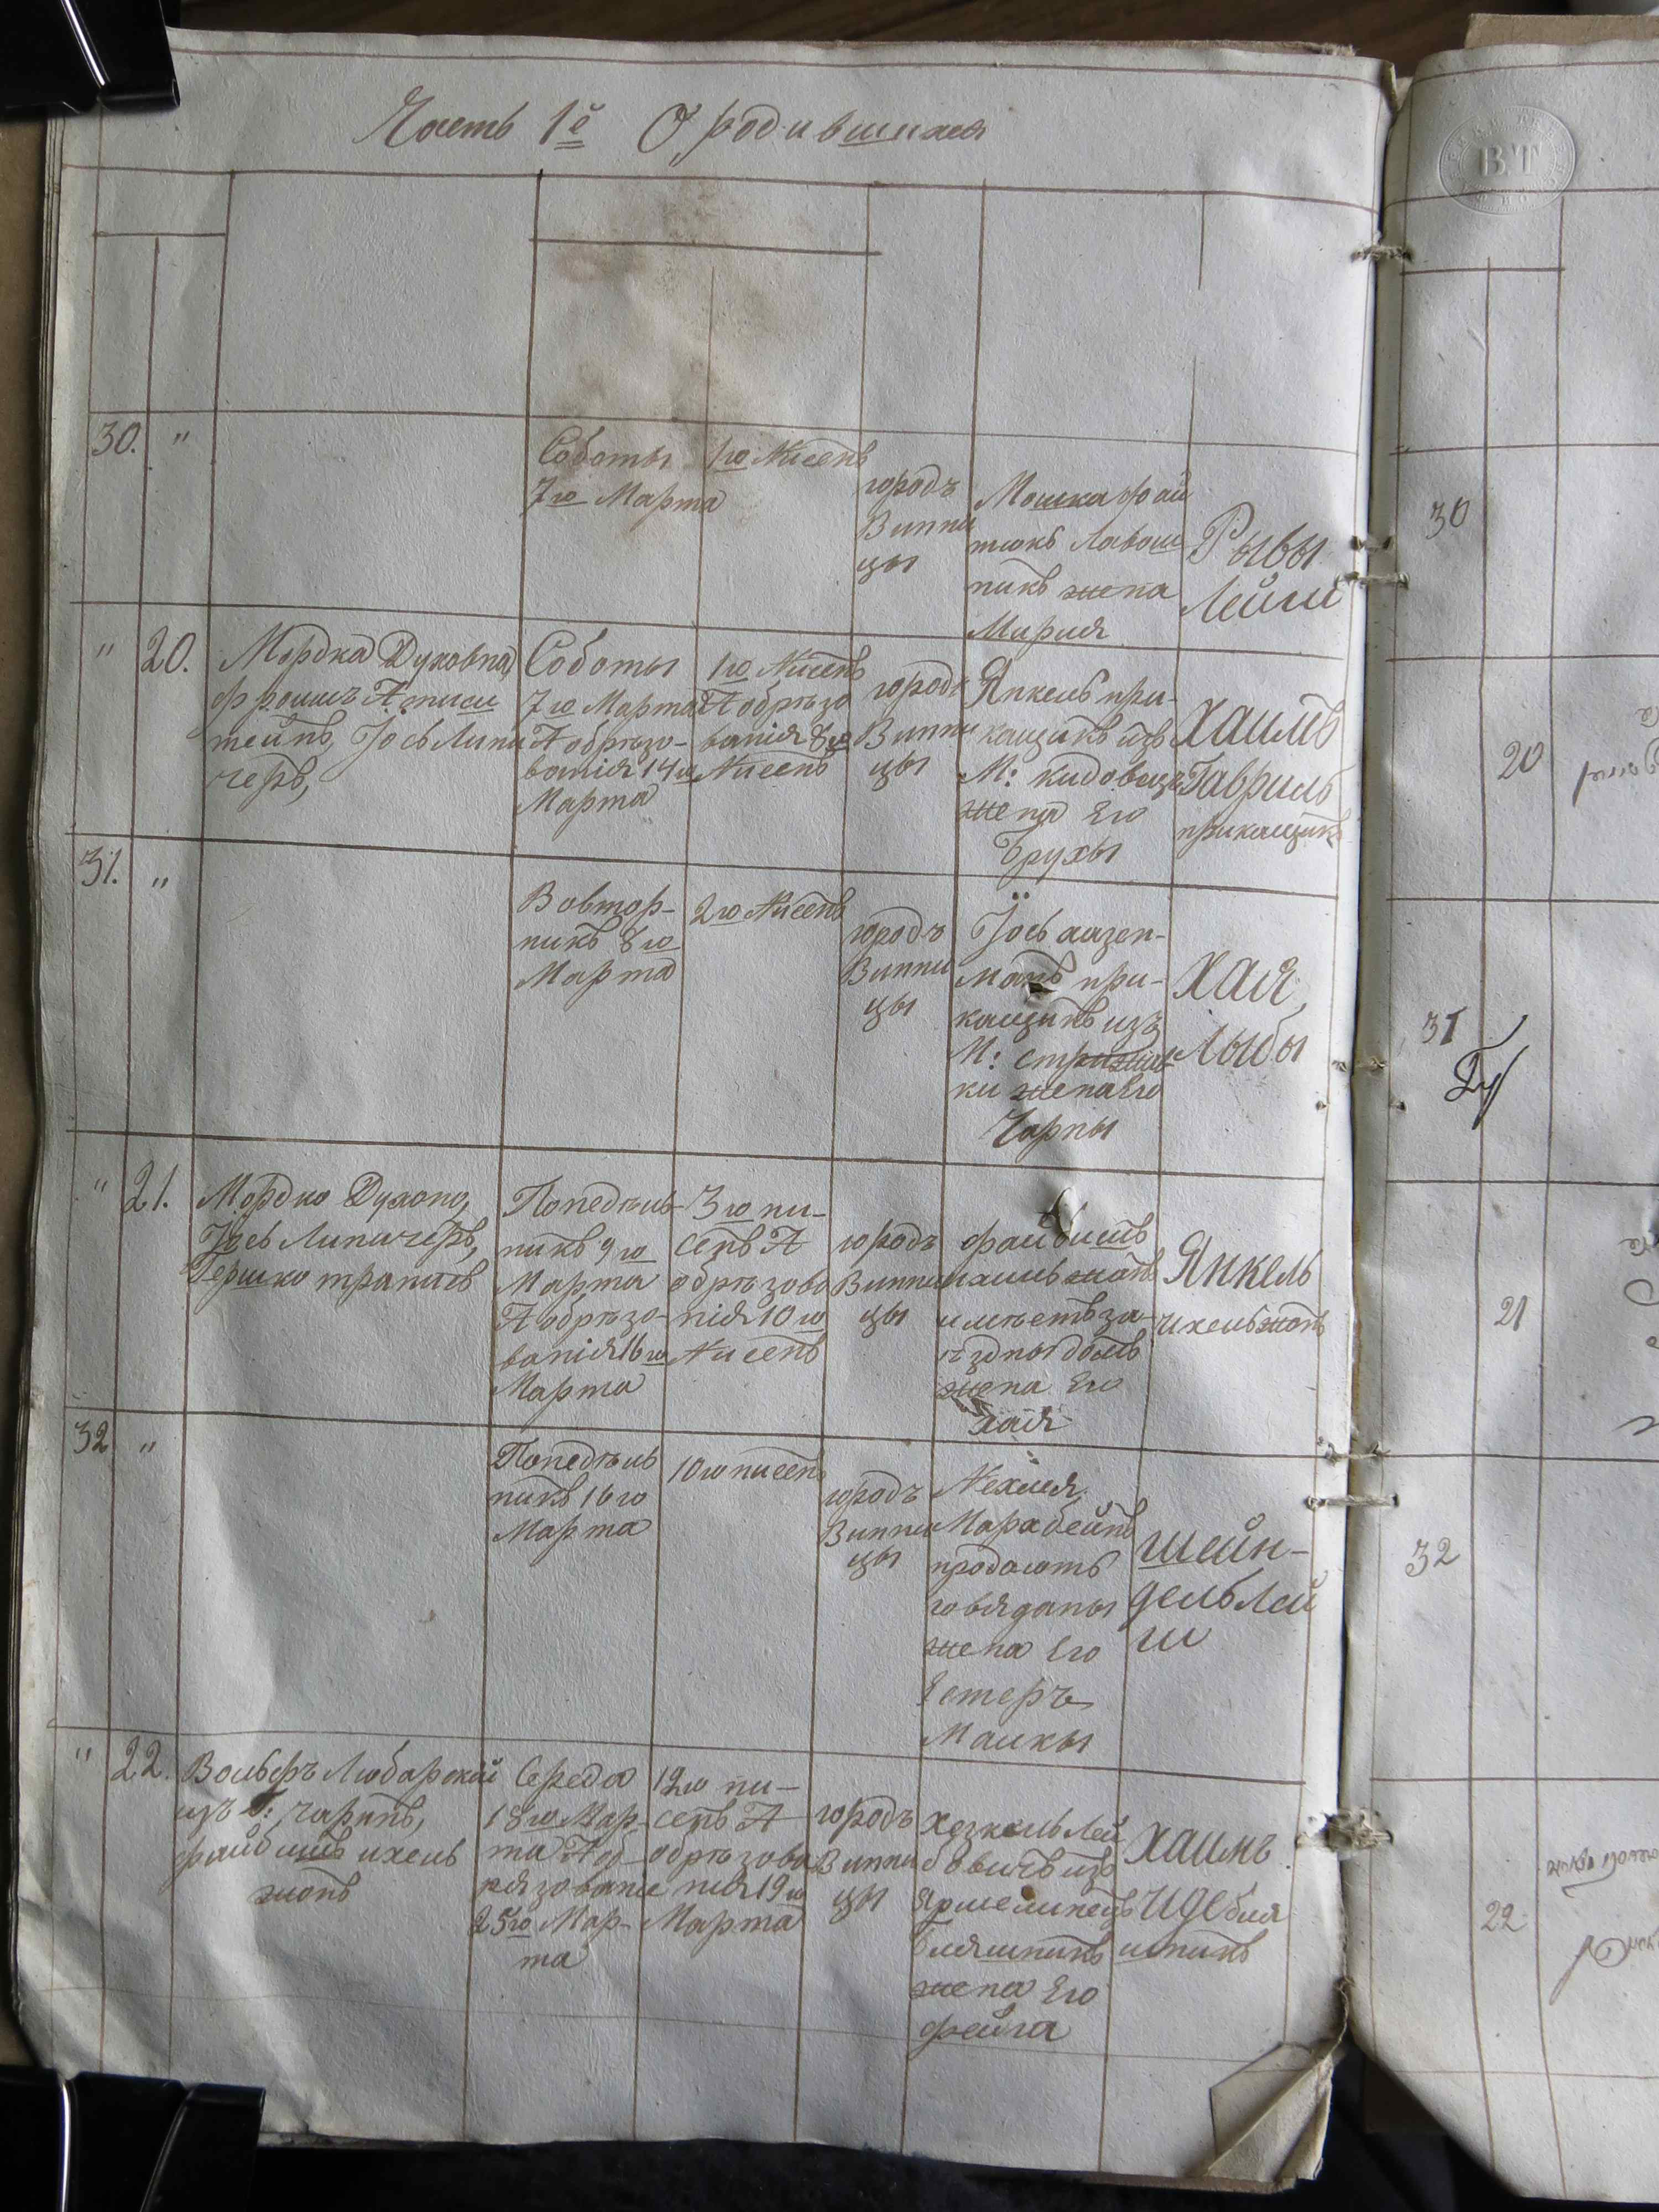 Часть 1я О родившихся
В.Т
30. "
Соботы
7го Марта
1го Нисенъ
городъ
Винни
цы
Мошка фай
никъ жена
Мирия
Рывы
Лейи
" 20.
Мордка Духовна,
тейнъ, Іось Липи
черъ,
Соботы
7го Марта
А обрѣзо-
ванія 14го
Марта
1го Нисенъ
А обрѣзо
ванія 8го
Нисенъ
городъ
Винни
цы
Янкель при-
кащикъ изъ
М:
жена Его
Брухы
Хаимъ
Гавриль
прикащикъ
31. "
Вовтор-
никъ 8го
Марта
2го Нисенъ
городъ
Винни
цы
Іось аизен-
манъ при-
кащикъ изъ
М: стрижав-
ки жена Его
Чарны
Хая
Лыбы
" 21.
Мордко Духоно,
Іось Липичеръ,
Гершко
Понедѣль-
никъ 9го
Марта
А обрѣзо-
ванія 16го
Марта
3го ни-
сенъ А
обрѣзова
нія 10го
Нисенъ
городъ
Винни
цы
файбишъ
ихельжонъ
имѣетъ за-
ѣздны домъ
жена Его
хая
Янкель
ихельжонъ
32 "
Понедѣль
никъ 16го
Марта
10го нисенъ
городъ
Винни
цы
Нехмея
продаютъ
говяданы
жена Его
Естеръ
Малкы
Шейн-
дель Лей
" 22.
Вольфъ Любарский
файбишъ ихель
жонъ
Середа
18го Мар-
та А об
рязование
25го Мар-
та
12го ни-
сенъ А
обрѣзова
ния 19го
Марта
городъ
Винни
цы
Хезкель Лей
бовичъ изъ
Ярмелинецъ
бляшникъ
жена Его
фейга
Хаимъ
Иде бля
шникъ
30
20
31
21
32
22